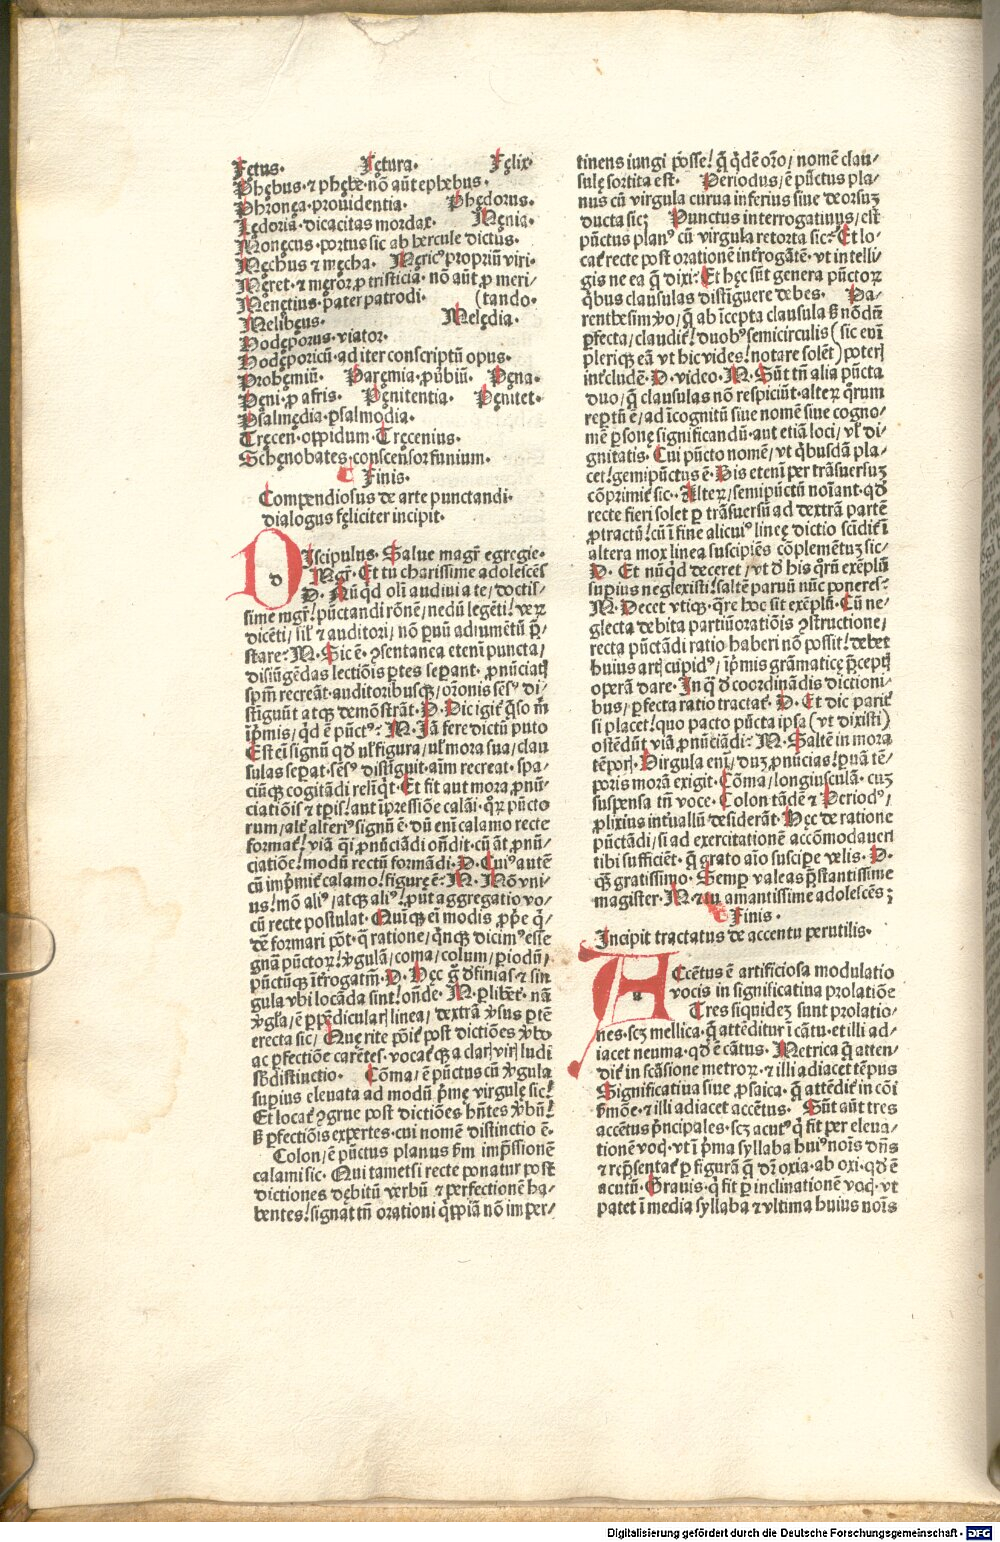 Fętus. Fętura. Fęlix
Phębus. ⁊ phębe. nō aūt ephebus.
Phronęa. prouidentia. Phędorus.
Lędoria. dicacitas mordax. Męnia.
Monęcus. portus sic ab hercule dictus.
Męchus ⁊ męcha. Męric⁹ propriū viri.
Męret. ⁊ męror. p tristicia. nō aūt. p meri/
Menętius. pater patrocli. (tando.
Melibęus. Melędia.
Hodęporus. viator.
Hodęporicū. ad iter conscriptū opus.
Prohęmiū. Paręmia. puerbiū. Pęna.
Pęni. p afris. Pęnitentia. Pęnitet.
Psalmędia. psalmodia.
Tręcen. oppidum. Tręcenius.
Schęnobates. conscensor funium.
Finis.
Compendiosus de arte punctandi.
dialogus fęliciter incipit.
DIscipulus. Salue magr̄ egregie.
Mgr̄. Et tu charissime adolescēs
D. Nūqđ olī audiui a te / doctis/
sime mgr̄! pūctandi rōnē / nedū legēti! veꝝ
dicēti / sil'r ⁊ auditori / nō puū adiumētū p̄/
stare: M. Sic ē. ꝯsentanea etenī puncta /
disiūgēdas lectiōis ptes sepant. pnūciatꝭ
spm̄ recreāt. auditoribusqꝫ / orōnis sēs⁹ di/
stiguūt atqꝫ demōstrāt. D. Dic igiť q̄so m̄
īpmis / qđ ē pūct⁹: M. Jā fere dictū puto
Est eī signū qđ ul' figura / ul' mora sua / clau
sulas sepat. sēs⁹ distīguit. aīm recreat. spa/
ciūqꝫ cogitādi relīqt. Et fit aut mora pnū/
ciatiōis ⁊ tp̄is! aut īpressiōe calāi. qꝝ pūcto
rum / alť alteri⁹ signū ē. dū enī calamo recte
formať! viā qi pnūciādi oñdit. cū āt pnū/
ciatiōe! modū rectū formādi. D. Cui⁹ autē
cū imp̄miť calamo! figurę ē: M. Nō vni/
us! mō ali⁹ / atqꝫ ali⁹ / put aggregatio vo/
cū recte postulat. Quīqꝫ eī modis ppe q̄/
dē formari pōt. q̄ ratione / qnqꝫ dicim⁹ esse
gnā pūctoꝝ! v̄gulā / coma / colum / piodū /
pūctūqꝫ īt̄rogatīm. D. Hęc ḡ dfinias ⁊ sin
gula vbi locāda sint! oñde. M. p libēt. nā
v̄gl'a / ē ppēdicularꝭ linea / dextrā v̄sus ptē
erecta sic / Quę rite pōiť post dictiōes v̄bo
ac pfectiōe carētes. vocať qꝫ a clarꝭ virꝭ ludi
sb̄distinctio. Cōma / ē pūctus cū v̄gula
supius eleuata ad modū p̄mę virgulę sic!
Et locať ꝯgrue post dictiōes hn̄tes v̄bū!
sꝫ pfectiōis expertes. cui nomē distinctio ē.
Colon / ē pūctus planus fm̄ imp̄ssionē
calami sic. Qui tametsi recte ponatur post
dictiones dębitū verbū ⁊ perfectionē ha/
bentes! signat tn̄ orationi qppiā nō imper/
tinens iungi posse! q̄ qdē orō / nomē clau/
sulę sortita est. Periodus / ē pūctus pla/
nus cū virgula curua inferius siue deorsuꝫ
ducta sic; Punctus interrogatiuus / est
pūctus plan⁹ cū virgula retorta sic: Et lo/
cať recte post orationē int̄rogātē. vt intelli/
gis ne ea q̄ dixi: Et hęc sūt genera pūctoꝝ
qbus clausulas distīguere debes. Pa/
renthesim v̄o / q̄ ab īcepta clausula sꝫ nōdū
pfecta / claudit̄! duob⁹ semicirculis (sic enī
pleriqꝫ eā vt hic vides! notare solēt) poterꝭ
int̄cludē. D. video. M. Sūt tn̄ alia pūcta
duo / q̄ clausulas nō respiciūt. alteꝝ qꝝum
reptū ē / ad īcognitū siue nomē siue cogno/
mē psonę significandū. aut etiā loci / vl' di/
gnitatis. Cui pūcto nomē / vt qbusdā pla/
cet! gemipūctus ē. Bis etenī per trāsuersuꝫ
cōprimiť sic.. Alteꝝ / semipūctū noīant. qđ
recte fieri solet p trāsuersū ad dextrā partē
ptractū! cū ī fine alicui⁹ lineę dictio scīdiť ī
altera mox linea suscipiēs cōplemētuꝫ sic/
D. Et nūqđ deceret / vt d his qꝝū exēplū
supius neglexisti! saltē paruū nūc poneres:
M. Decet vtiqꝫ. q̄re hoc sit exēplū. Cū ne/
glecta debita partiū oratiōis ꝯstructione /
recta pūctādi ratio haberi nō possit! debet
huius artꝭ cupid⁹ / īp̄mis grāmaticę p̄ceptꝭ
operā dare. In q d coordinādis dictioni/
bus / pfecta ratio tractať. D. Et dic pariť
si placet! quo pacto pūcta ipsa (vt dixisti)
ostēdūt viā pnūciādi: M. Saltē in mora
tēporꝭ. Virgula enī / duꝫ pnūcias! puā tē/
poris morā exigit. Cōma / longiusculā. cuꝫ
suspensa tn̄ voce. Colon tādē ⁊ Period⁹ /
plixius int̄uallū desiderāt. Hęc de ratione
pūctādi / si ad exercitationē accōmodauerꝭ
tibi sufficiēt. q̄ grato aīo suscipe velis. D.
qꝫ gratissimo. Semp valeas p̄stantissime
magister. M. ⁊ tu amantissime adolescēs;
Finis.
Incipit tractatus de accentu perutilis.
ACcētus ē artificiosa modulatio
vocis in significatiua prolatiōe
Tres siquidēꝫ sunt prolatio/
nes. scꝫ mellica. q̄ attēditur ī cātu. et illi ad/
iacet neuma. qđ ē cātus. Metrica q̄ atten/
diť in scāsione metroꝝ. ⁊ illi adiacet tēpus
Significatiua siue psaica. q̄ attēdiť in cōi
s̄mōe. ⁊ illi adiacet accētus. Sūt aūt tres
accētus pncipales. scꝫ acut⁹ q fit per eleua/
tionē vocꝭ. vt ī p̄ma syllaba hui⁹ noīs dn̄s
⁊ rep̄sentať p figurā q̄ dr̄ oxia. ab oxi. qđ ē
acutū. Grauis. q fit p inclinationē vocꝭ. vt
patet ī media syllaba ⁊ vltima huius noīs
Digitalisierung gefördert durch die Deutsche Forschungsgemeinschaft - DFG